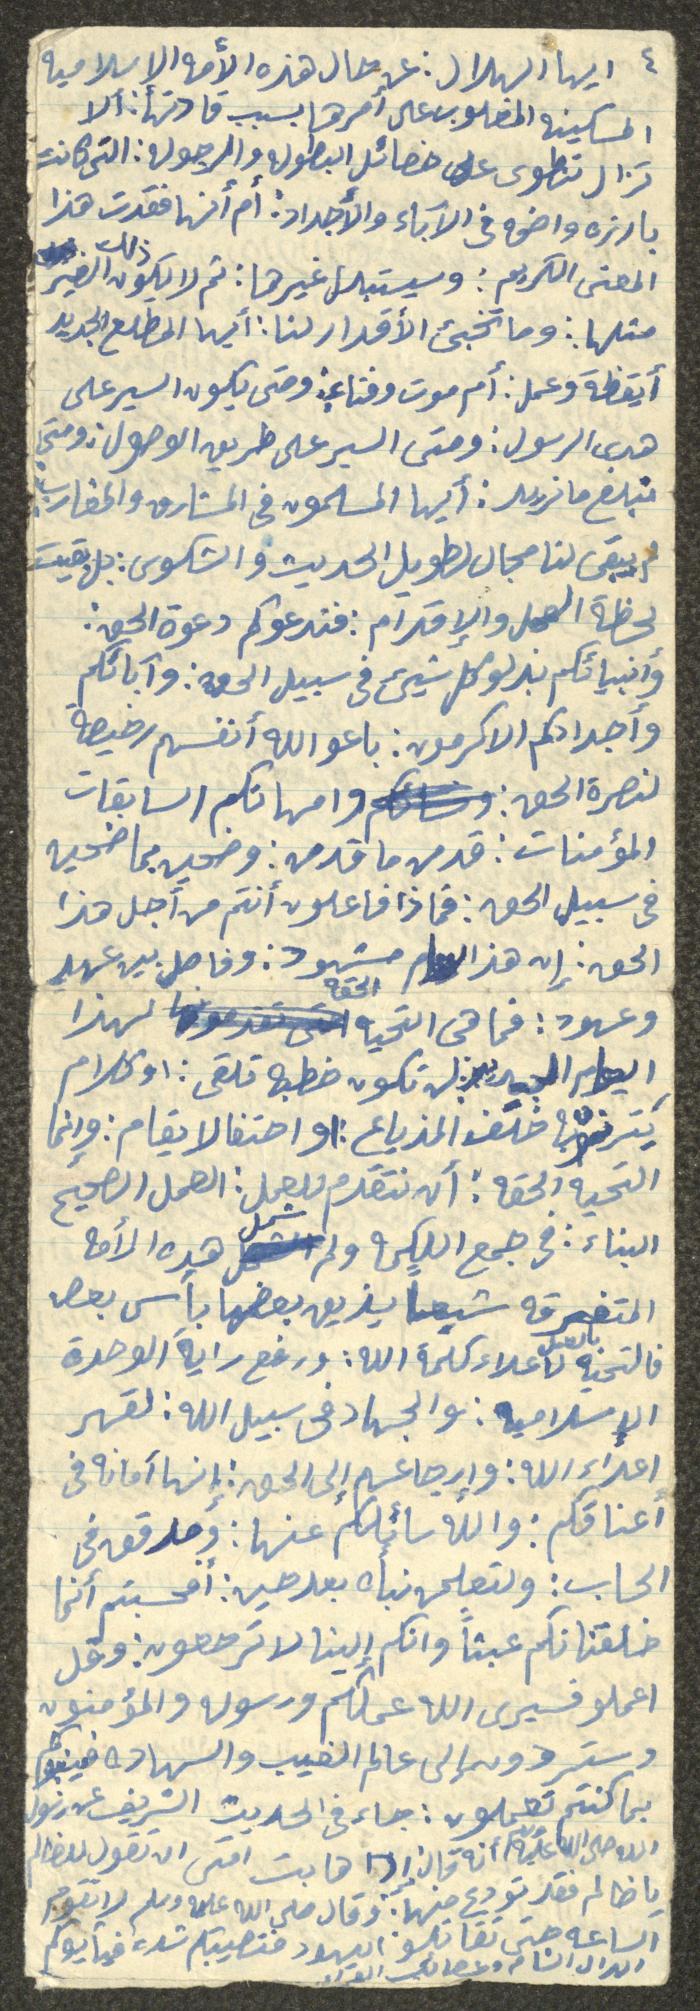 ٤ ايها الهلال : عن حال هذه الأمه الإسلاميه
المسكينه المغلوب على أمرها بسبب قادتها : ألا
تزال تنطوى على خصائل البطوله والرجوله : التى كانت
بارزه واضحه فى الآباء والأجداد : أم أنها فقدت هذا
المعنى الكريم : وسيستبدل غيرها : ثم لا يكون ذلك الغير
مثلها : وما تخبئ الأقدار لنا : أيها المطلع الجديد
أيقظة وعمل : أم موت وفناء : ومتى يكون السير على
هدى الرسول : ومتى السير على طريق الوصول : ومتى
نبلغ ما نريد : أيها المسلمون فى المشارق والمغارب :
لم يبقى لنا مجال لطويل الحديث والشكوى : بل بقيت
لحظة العمل والإقدام : فندعوكم دعوة الحق :
وأنبيائكم بذلو كل شيئ فى سبيل الحق : وآبائكم
وأجدادكم الاكرمون : باعو الله أنفسهم رخيصة
لنصرة الحق : وامهاتكم السابقات
المؤمنات : قدمن ما قدمن : وضحين بما ضحين
فى سبيل الحق : فماذا فاعلون أنتم من أجل هذا
الحق : إن هذا العام مشهود : وفاصل بين عهد
وعهود : فما هى التحيه الحقه لهذا
العام الجديد : لن تكون خطبه تلقى : او كلام
يترنم بها خلف المذياع : او احتفالا يقام : وإنما
التحيه الحقه : أن نتقدم للعمل : العمل الصحيح
البناء : فى جمع الكلمة ولم شمل هذه الأمه
المتفرقه شيعاً يذيق بعضها بأس بعض
فالتحيه بالعمل لأعلاء كلمة الله : ورفع راية الوحدة
الإسلاميه : والجهاد فى سبيل الله : لقهر
اعداء الله : وإرجاعهم إلى الحق : إنها أمانه فى
أعناقكم : والله سائلكم عنها : فى
الحساب : ولتعلمن نبأه بعد حين : أفحسبتم أنما
خلقناكم عبثاً وانكم إلينا لا ترجعون : وقل
اعملو فسيرى الله عملكم ورسوله والمؤمنون
وستردون إلى عالم الغيب والشهاده فينبئكم
بما كنتم تعملون : جاء فى الحديث الشريف عن رسول
الله صلى الله عليه وسلم أنه قال إذا هابت امتى ان تقول للظالم
يا ظالم فقد تودع منها : وقال صلى الله عليه وسلم لا تقوم
الساعه حتى تقاتلو اليهود فتصيبكم شده فيأتيكم
ابدال الشام وعصائب العراق